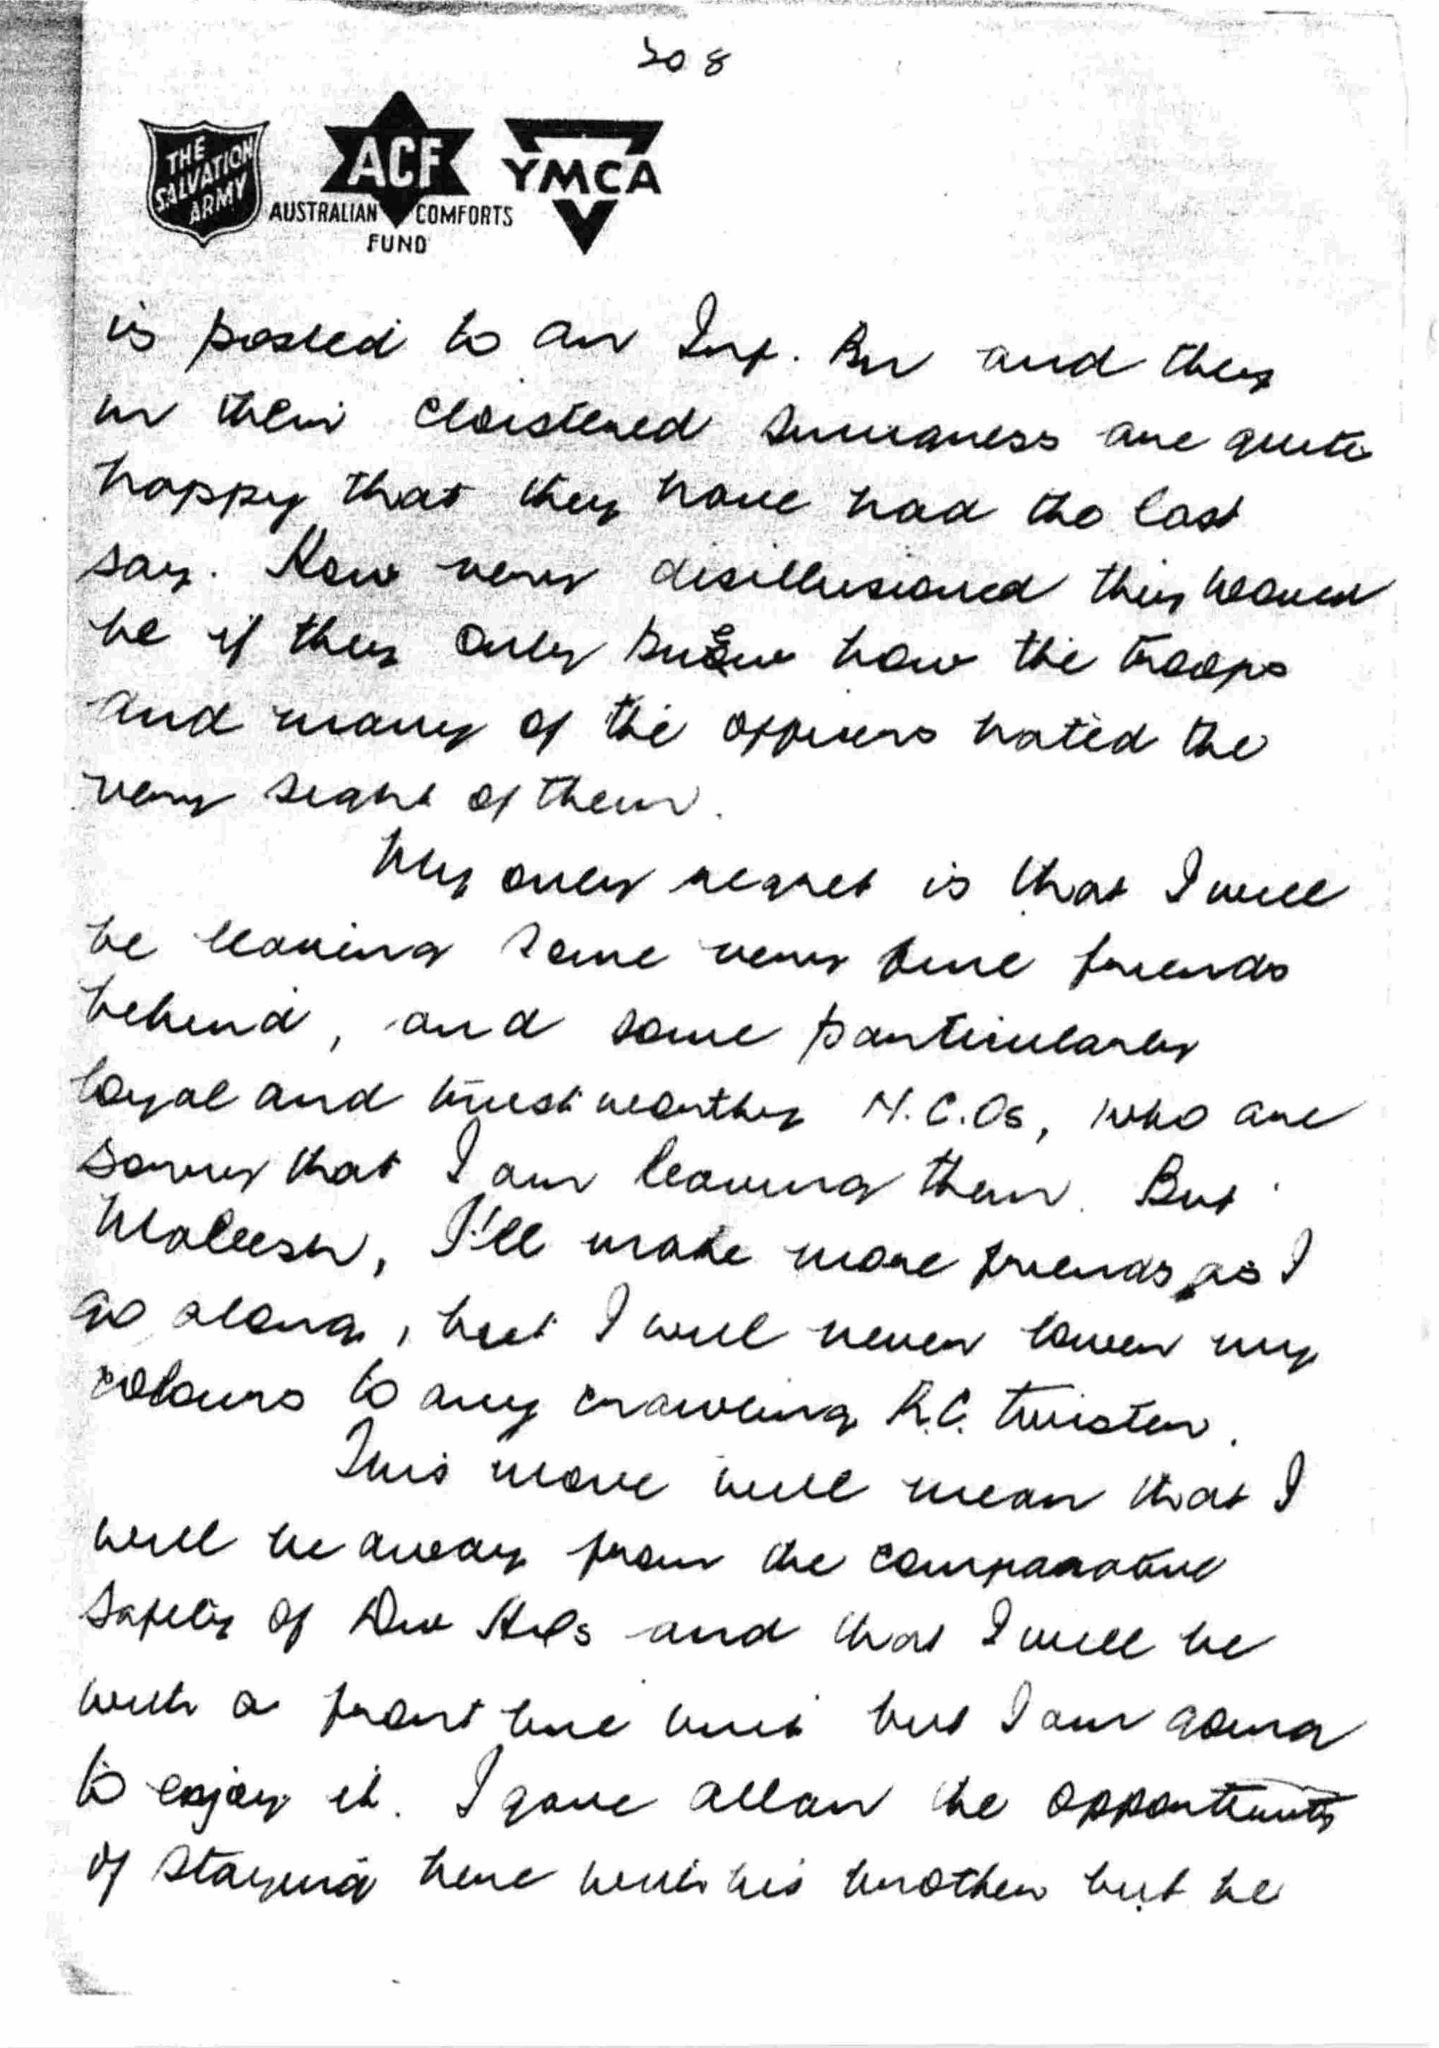 208
THE SALVATION ARMY
ACF
AUSTRALIAN COMFORTS FUND
YMCA
is posted to an Inf. Bn and they
in their cloistered smugness are quite
happy that they have had the last
say. How very disillusioned they would
be if they only knew how the troops
and many of the officers hated the
very sight of them.
My only regret is that I will
be leaving some very fine friends
behind, and some particularly
loyal and trustworthy N.C.Os, who are
sorry that I am leaving them. But
Maleesh, I'll make more friends as I
go along, but I will never lower my
colours to any crawling R.C. twister.
This move will mean that I
will be away from the comparative
safety of Div Hqs and that I will be
with a front line unit but I am going
to enjoy it. I gave Allan the opportunity
of staying here with his brother but he